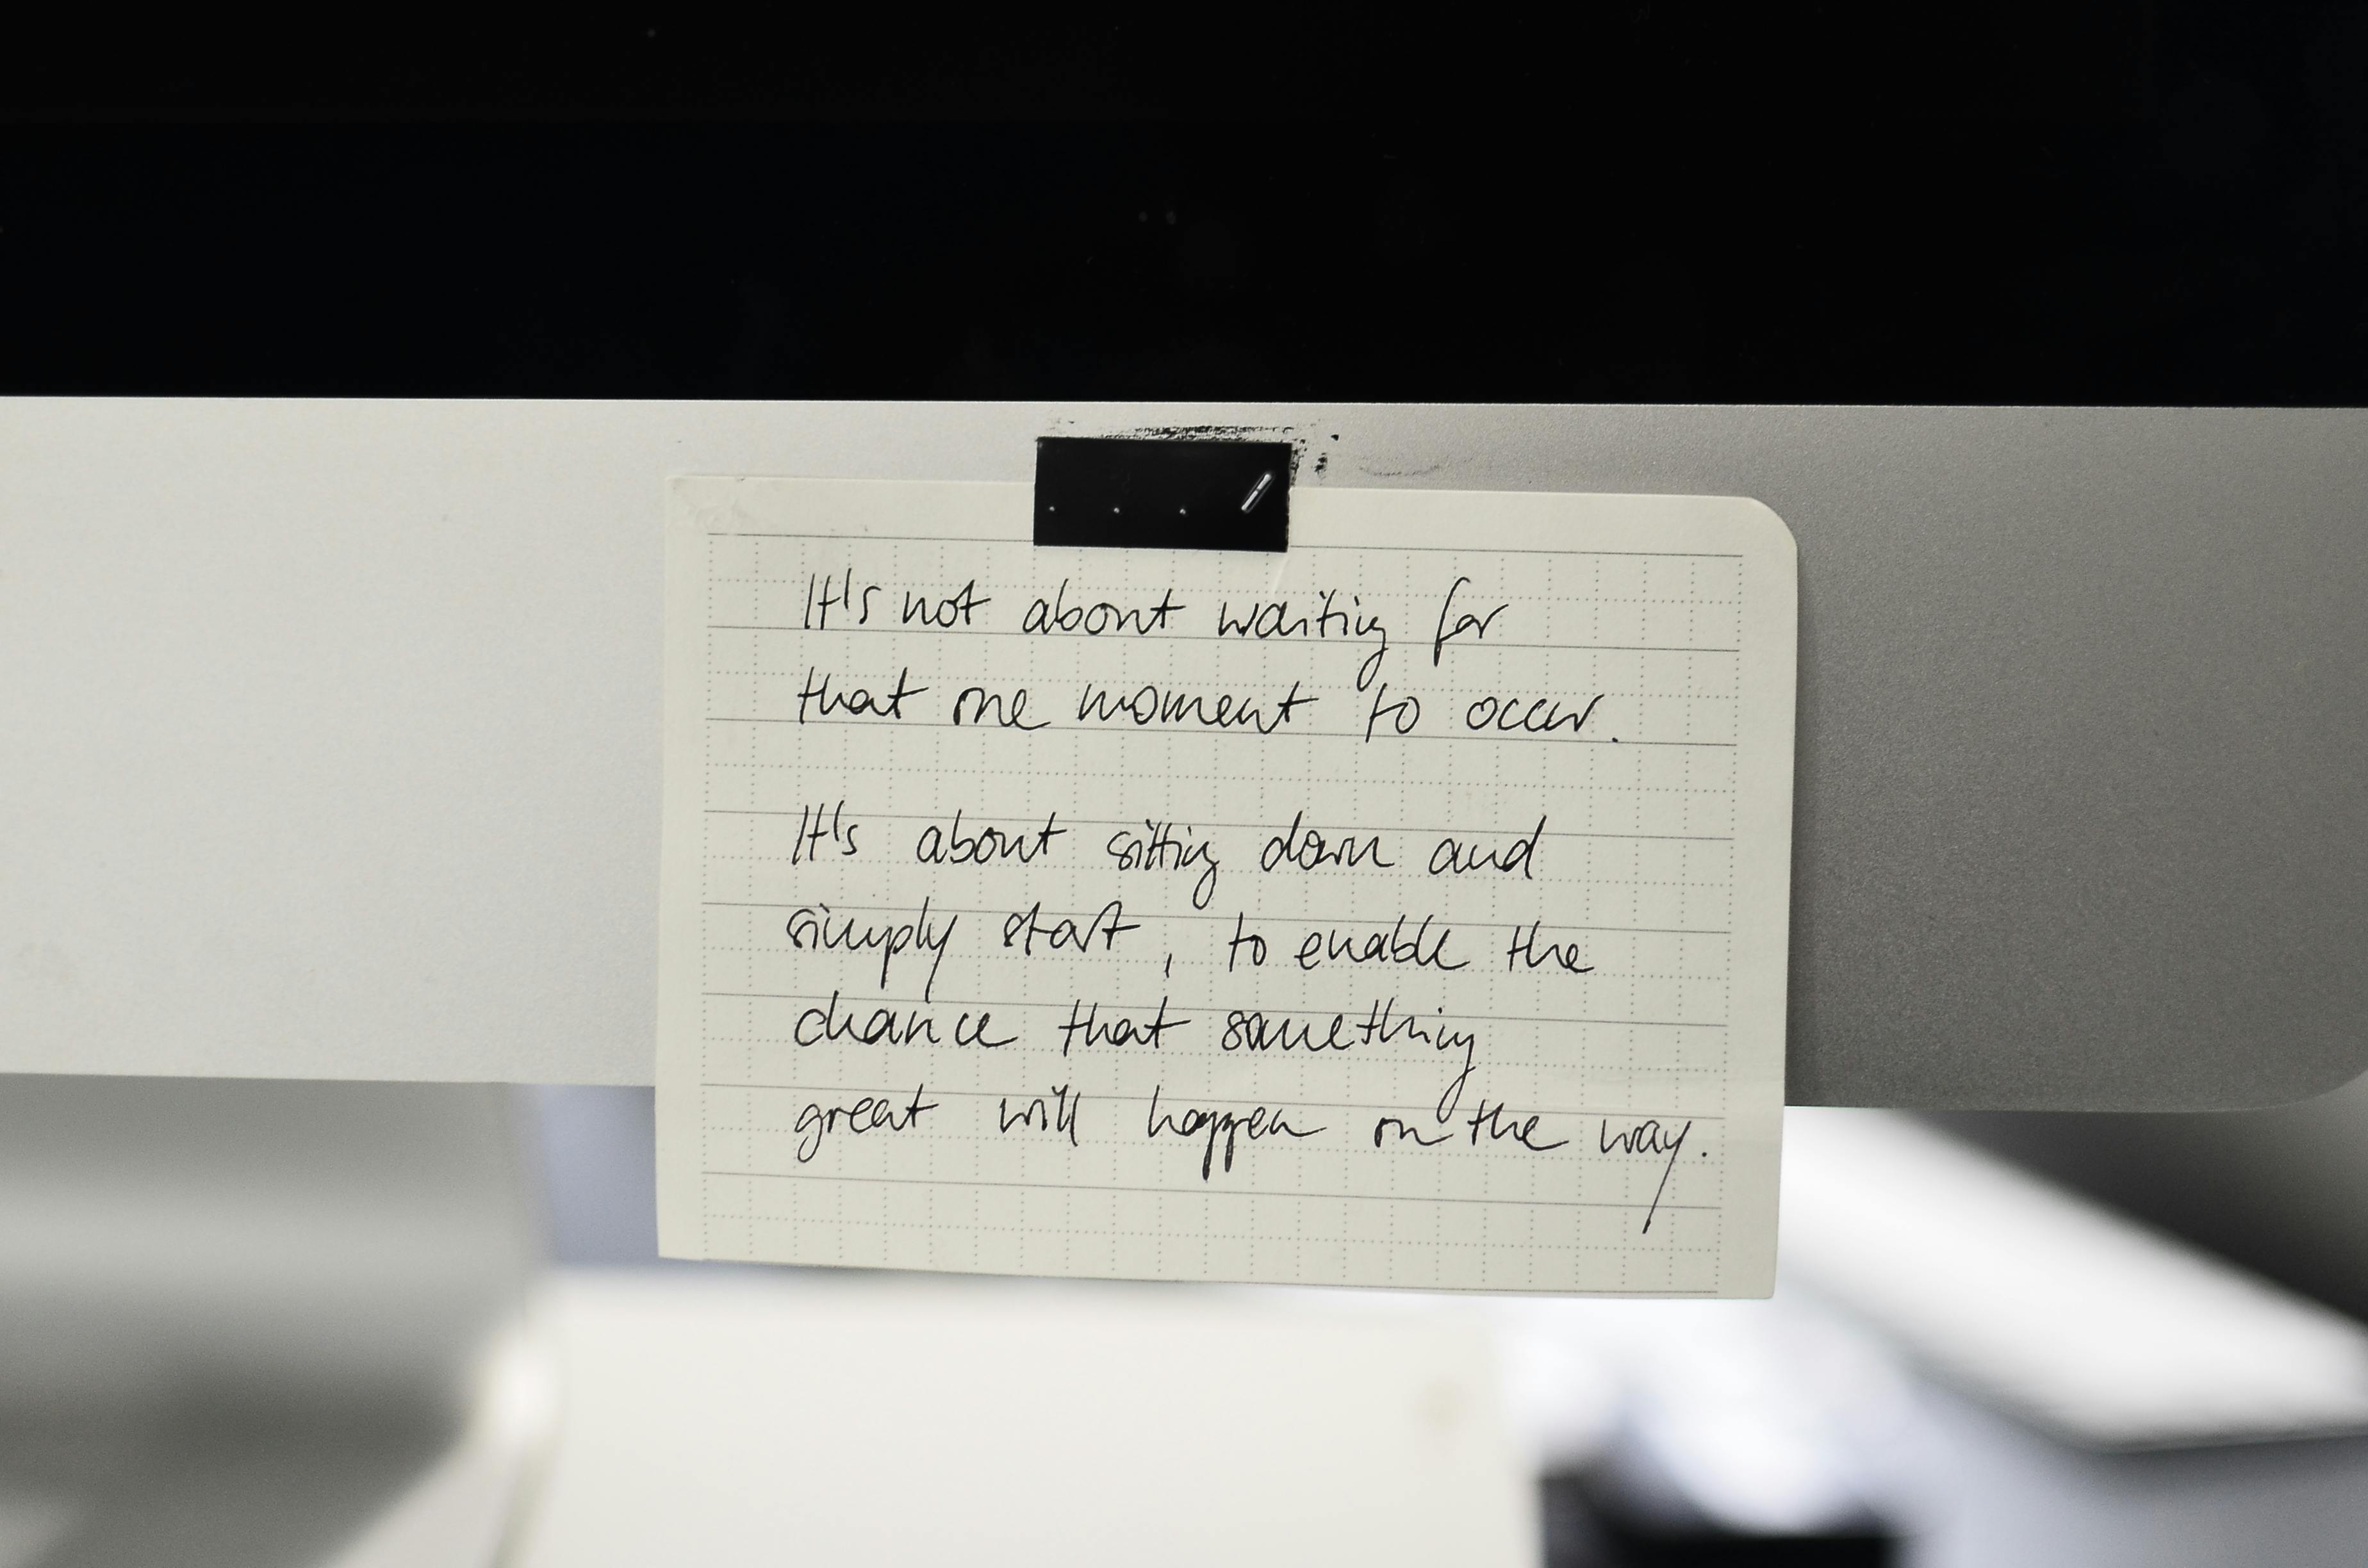 It's not about waiting for
that one moment to occur.
It's about sitting down and
simply start, to enable the
chance that something
great will happen on the way.